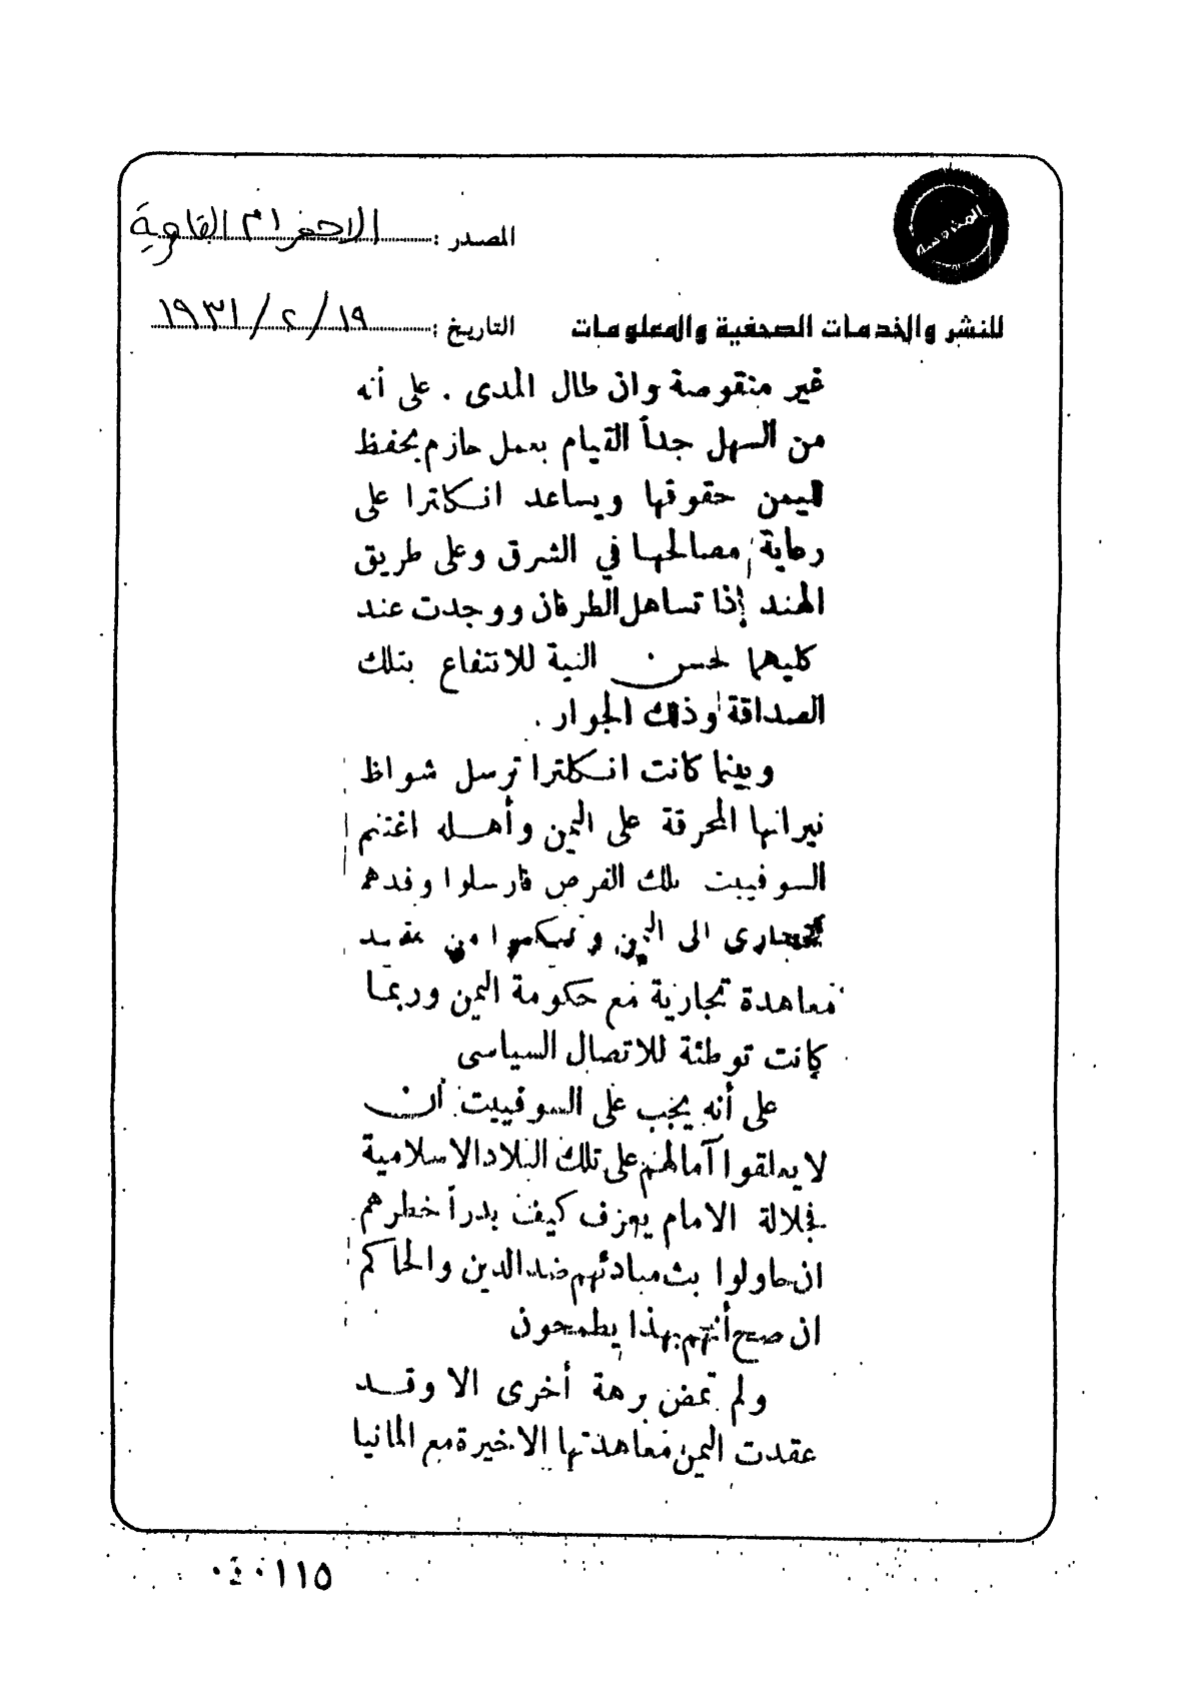 المصدر : الاهرام القاهرية
للنشر والخدمات الصحفية والمعلومات
التاريخ : ١٩ / ٢ / ١٩٣١
غير منقوصة وان طال المدى . على أنه
من السهل جداً القيام بعمل حازم يحفظ
لليمن حقوقها ويساعد انكلترا على
رعاية مصالحها في الشرق وعلى طريق
الهند إذا تساهل الطرفان ووجدت عند
كليهما حسن النية للانتفاع بتلك
الصداقة وذلك الجوار .
وبينما كانت انكلترا ترسل شواظ
نيرانها المحرقة على اليمن وأهله اغتنم
السوفييت تلك الفرص فارسلوا وفدهم
التجارى الى اليمن وتمكنوا من عقد
معاهدة تجارية مع حكومة اليمن وربما
كانت توطئة للاتصال السياسى
على أنه يجب على السوفييت أن
لا يعلقوا آمالهم على تلك البلاد الاسلامية
فجلالة الامام يعرف كيف يدرأ خطرهم
ان حاولوا بث مبادئهم ضد الدين والحاكم
ان صح أنهم بهذا يطمحون
ولم تمض برهة أخرى الا وقد
عقدت اليمن معاهدتها الاخيرة مع المانيا
٠٤٠١١٥